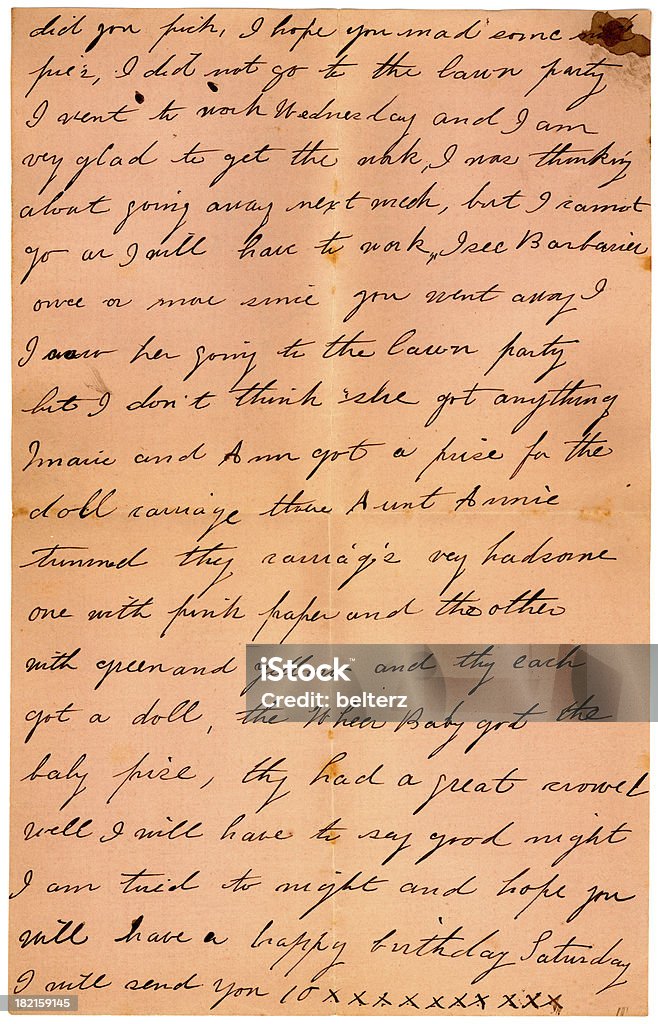 did you pick, I hope you mad some
pie's, I did not go to the lawn party
I went to work Wednesday and I am
vey glad to get the work, I was thinking
about going away next week, but I cannot
go as I will have to work, I see Barbarier
once or more since you went away I
I saw her going to the lawn party
but I don't think she got anything
Imarie and Ann got a prise for the
doll carriage there Aunt Annie
trimmed thy carriag's vey hadsome
one with pink paper and the other
with green and yellow and thy each
got a doll, the Wheer Baby got the
baby prise, thy had a great crowel
well I will have to say good night
I am tried to night and hope you
will have a happy birthday Saturday
I will send you 10 x x x x x x x x x x
iStock™
Credit: belterz
182159145